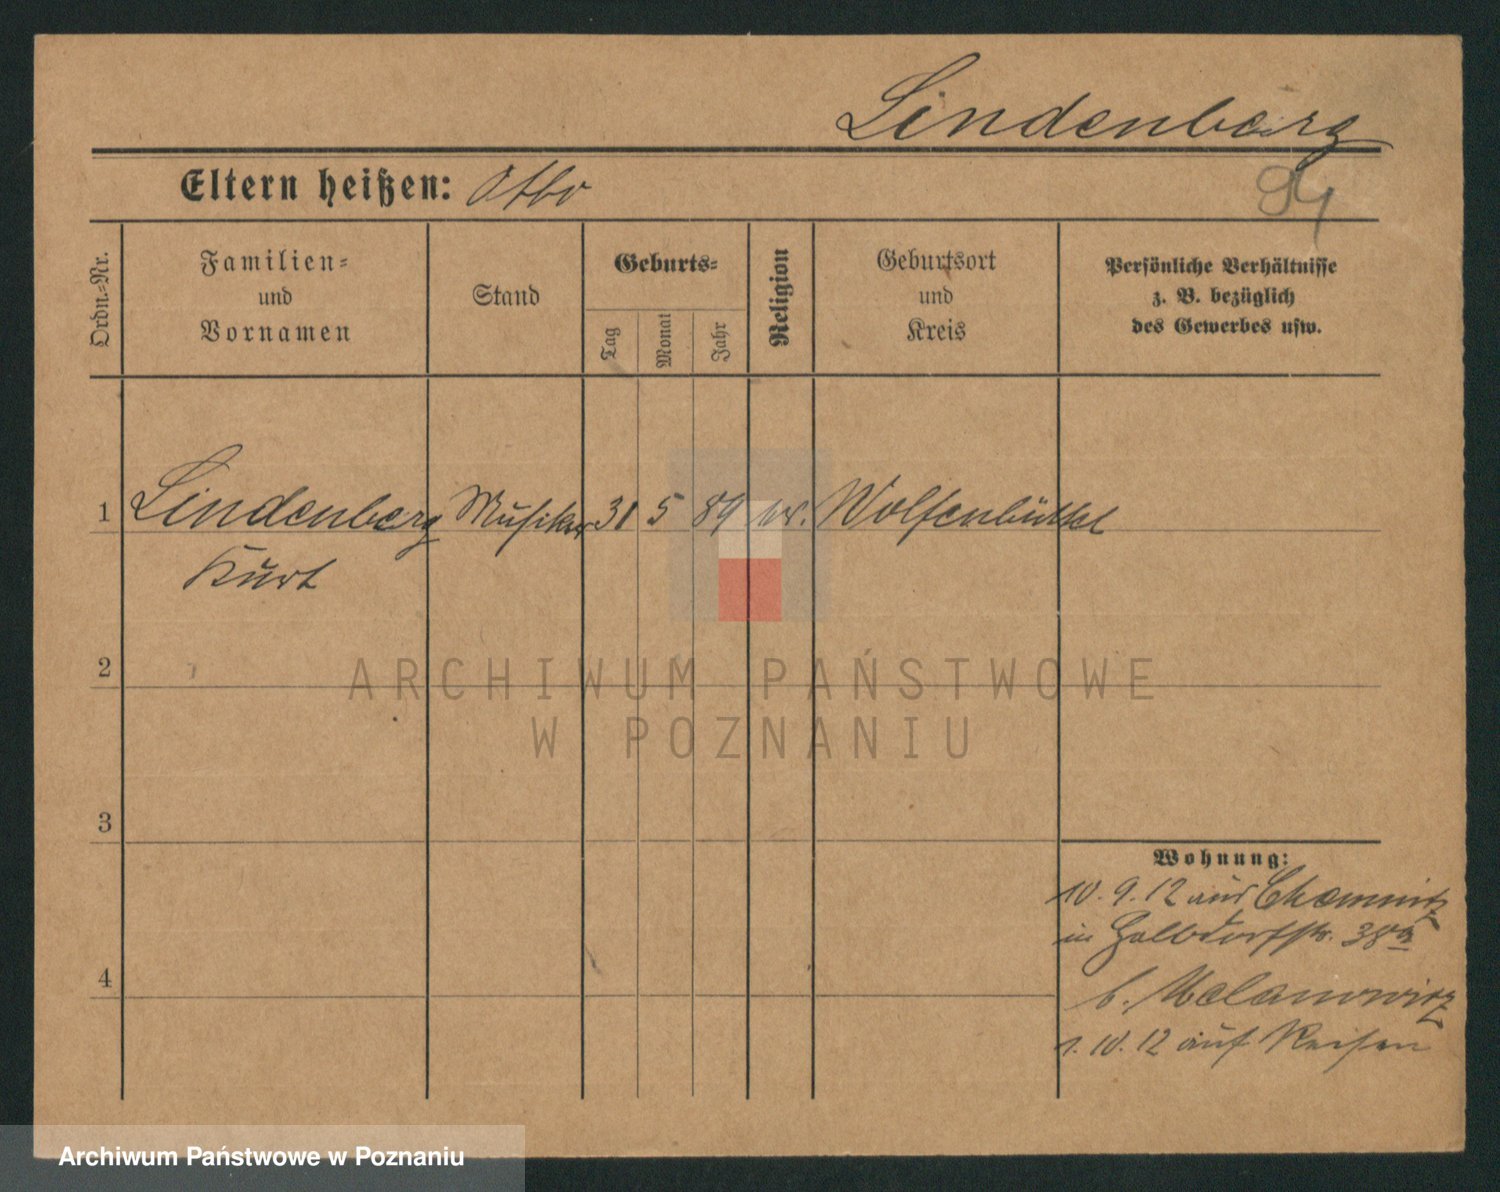 Lindenberg
94
Eltern heißen: Otto
Ordn.-Nr.
Familien-
und
Vornamen
Stand
Geburts-
Tag
Monat
Jahr
Religion
Geburtsort
und
Kreis
Persönliche Verhältnisse
z. B. bezüglich
des Gewerbes usw.
1 Lindenberg Musiker 31 5 89 ev. Wolfenbüttel
Kurt
2
3
4
Wohnung:
10.9.12 aus Chemnitz
in Halbdorfstr. 38a
b.
1.10.12 auf Reisen
ARCHIWUM PAŃSTWOWE
W POZNANIU
Archiwum Państwowe w Poznaniu